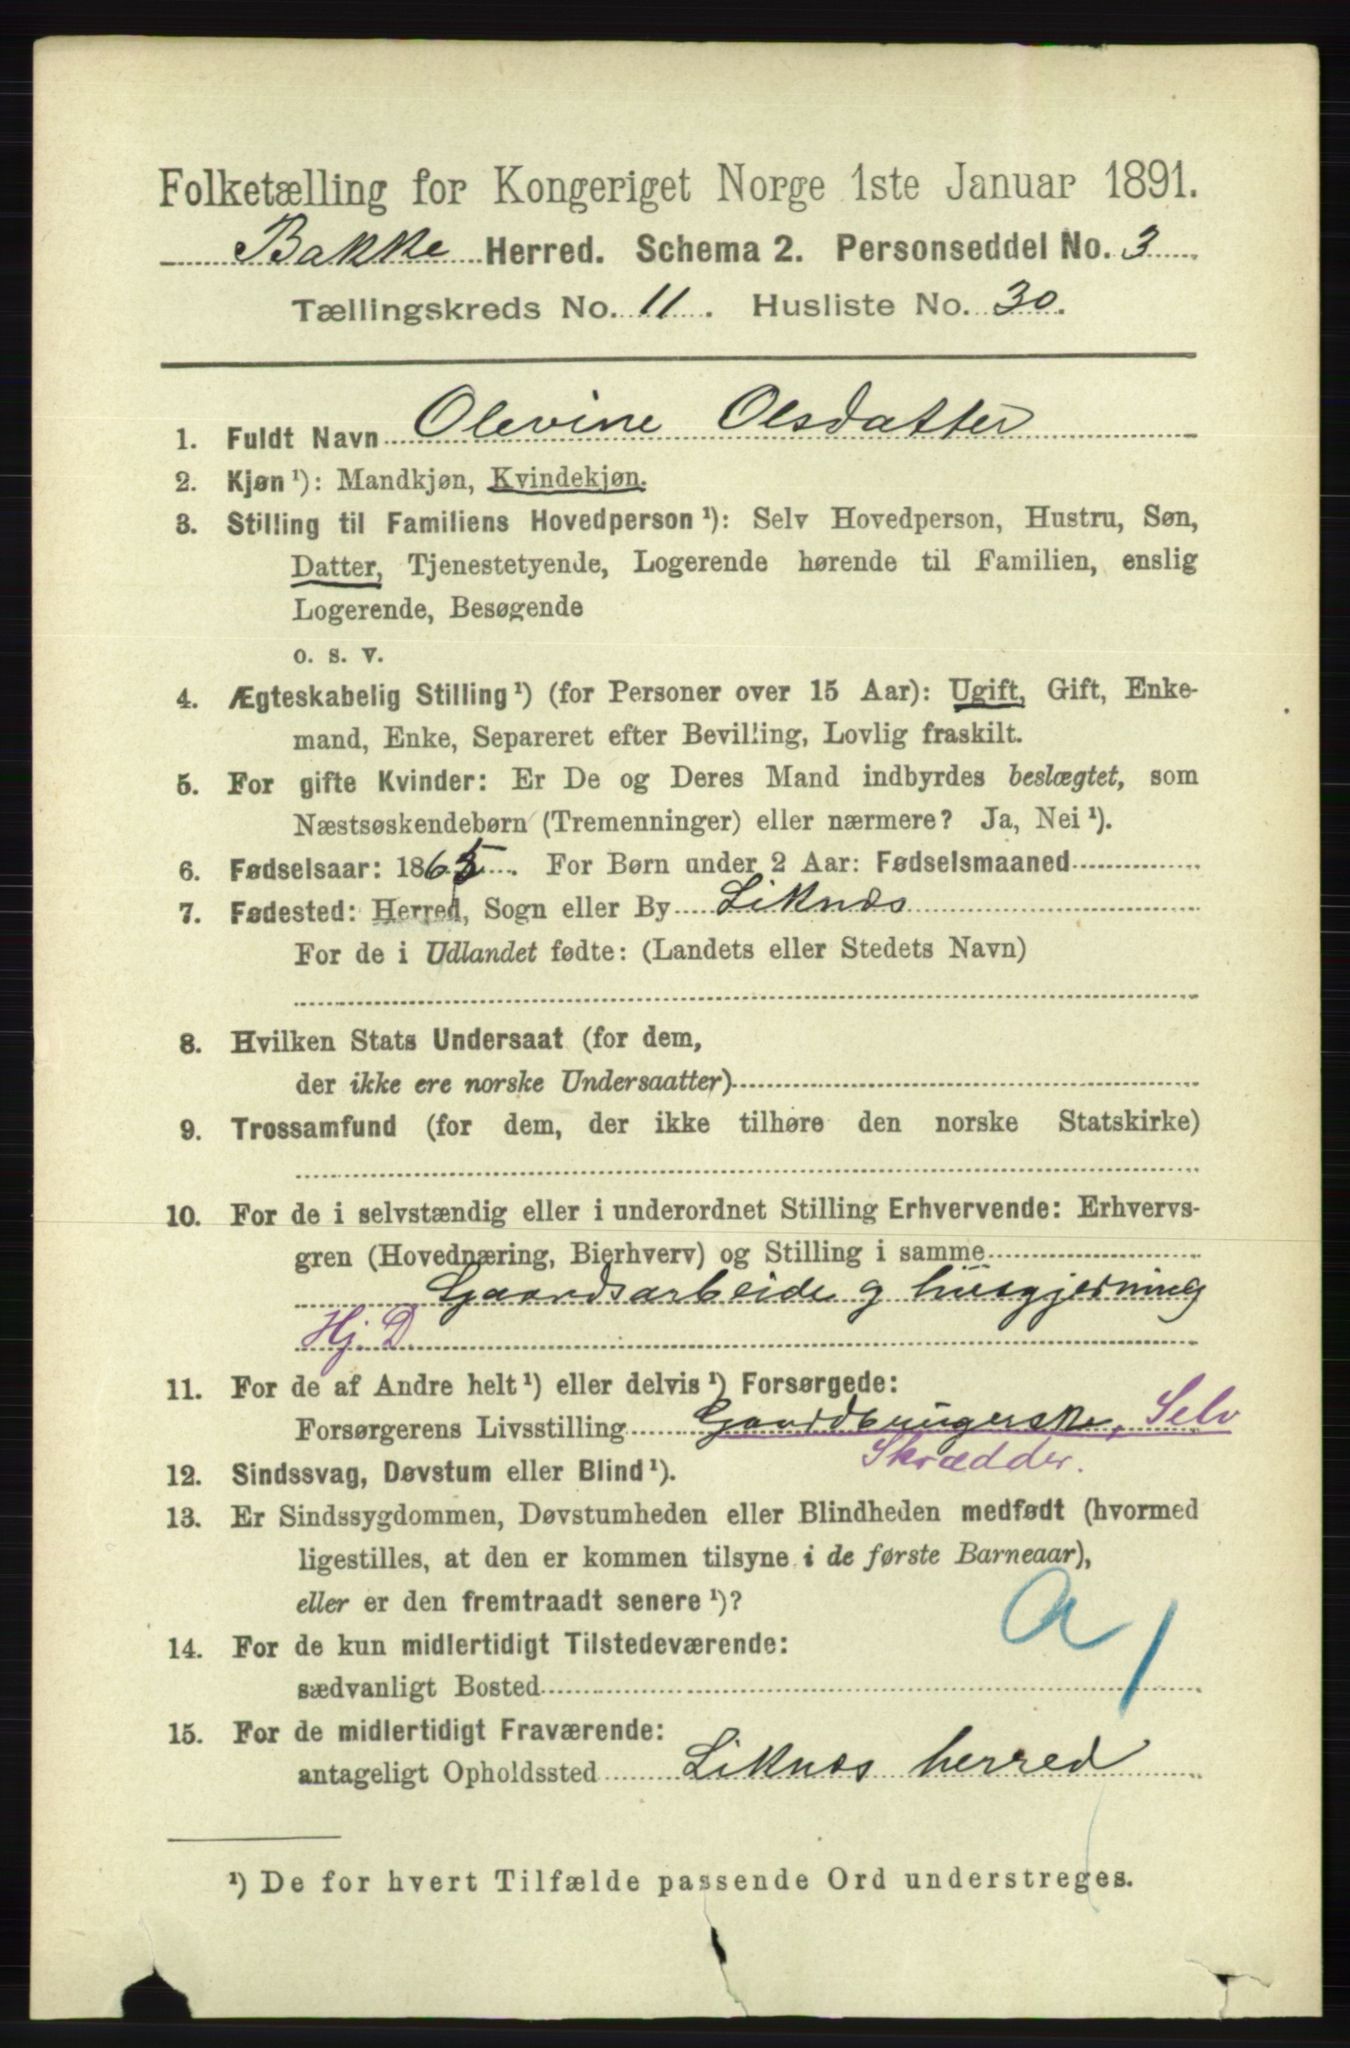 Folketælling for Kongeriget Norge 1ste Januar 1891.
Bakke Herred. Schema 2. Personseddel No. 3
Tællingskreds No. 11. Husliste No. 30.
1. Fuldt Navn Olevine Olsdatter
2. Kjøn ¹): Mandkjøn, Kvindekjøn.
3. Stilling til Familiens Hovedperson ¹): Selv Hovedperson, Hustru, Søn,
Datter, Tjenestetyende, Logerende hørende til Familien, enslig
Logerende, Besøgende
o. s. v.
4. Ægteskabelig Stilling ¹) (for Personer over 15 Aar): Ugift, Gift, Enke-
mand, Enke, Separeret efter Bevilling, Lovlig fraskilt.
5. For gifte Kvinder: Er De og Deres Mand indbyrdes beslægtet, som
Næstsøskendebørn (Tremenninger) eller nærmere? Ja, Nei ¹).
6. Fødselsaar: 1865. For Børn under 2 Aar: Fødselsmaaned
7. Fødested: Herred, Sogn eller By Liknæs
For de i Udlandet fødte: (Landets eller Stedets Navn)
8. Hvilken Stats Undersaat (for dem,
der ikke ere norske Undersaatter)
9. Trossamfund (for dem, der ikke tilhøre den norske Statskirke)
10. For de i selvstændig eller i underordnet Stilling Erhvervende: Erhvervs-
gren (Hovednæring, Bierhverv) og Stilling i samme
Gaardsarbeide g husgjerning
Hj. D.
11. For de af Andre helt ¹) eller delvis ¹) Forsørgede:
Forsørgerens Livsstilling Gaardbrugerske, Selv
Skrædder.
12. Sindssvag, Døvstum eller Blind ¹).
13. Er Sindssygdommen, Døvstumheden eller Blindheden medfødt (hvormed
ligestilles, at den er kommen tilsyne i de første Barneaar),
eller er den fremtraadt senere ¹)?
14. For de kun midlertidigt Tilstedeværende:
sædvanligt Bosted
a 1
15. For de midlertidigt Fraværende:
antageligt Opholdssted Liknæs herred
¹) De for hvert Tilfælde passende Ord understreges.